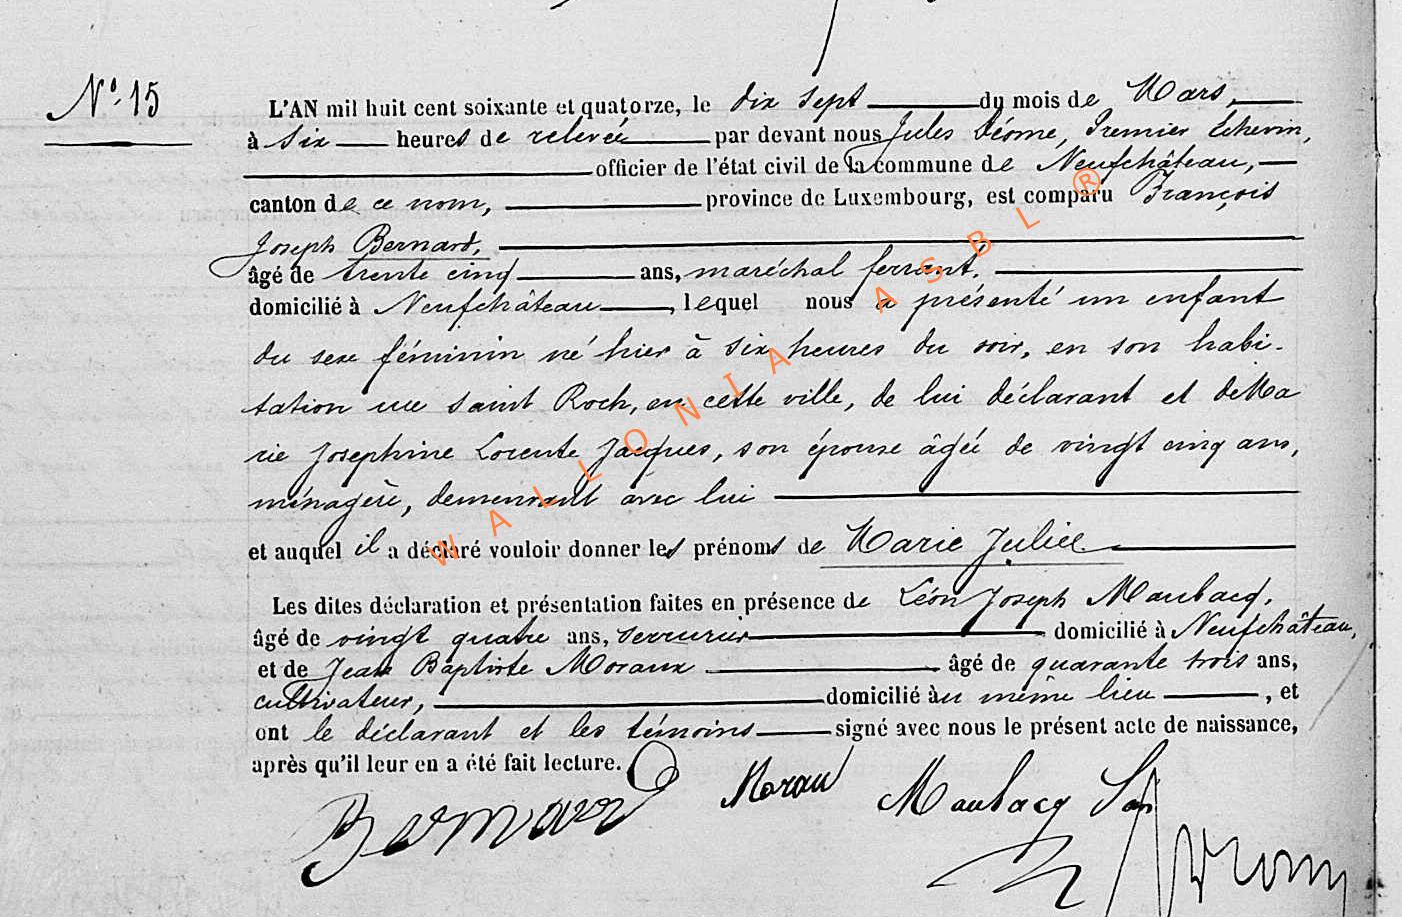 N° 15
L'AN mil huit cent soixante et quatorze, le dix sept du mois de Mars,
à six heures de relevée par devant nous Jules Désme, Premier Echevin,
officier de l'état civil de la commune de Neufchâteau,
canton de ce nom, province de Luxembourg, est comparu François
Joseph Bernard,
âgé de trente cinq ans, maréchal ferrant,
domicilié à Neufchâteau, lequel nous a présenté un enfant
du sexe féminin né hier à six heures du soir, en son habi-
tation rue Saint Roch, en cette ville, de lui déclarant et de Ma
rie Josephine Lorente Jacques, son épouse âgée de vingt cinq ans,
ménagère, demeurant avec lui
et auquel il a déclaré vouloir donner les prénoms de Marie Julie
Les dites déclaration et présentation faites en présence de Léon Joseph Maubacq,
âgé de vingt quatre ans, serrurier domicilié à Neufchâteau,
et de Jean Baptiste Moraux âgé de quarante trois ans,
cultivateur, domicilié au même lieu, et
ont le déclarant et les témoins signé avec nous le présent acte de naissance,
après qu'il leur en a été fait lecture.
Bernard Moraux Maubacq
WALLONIA ASBL ®